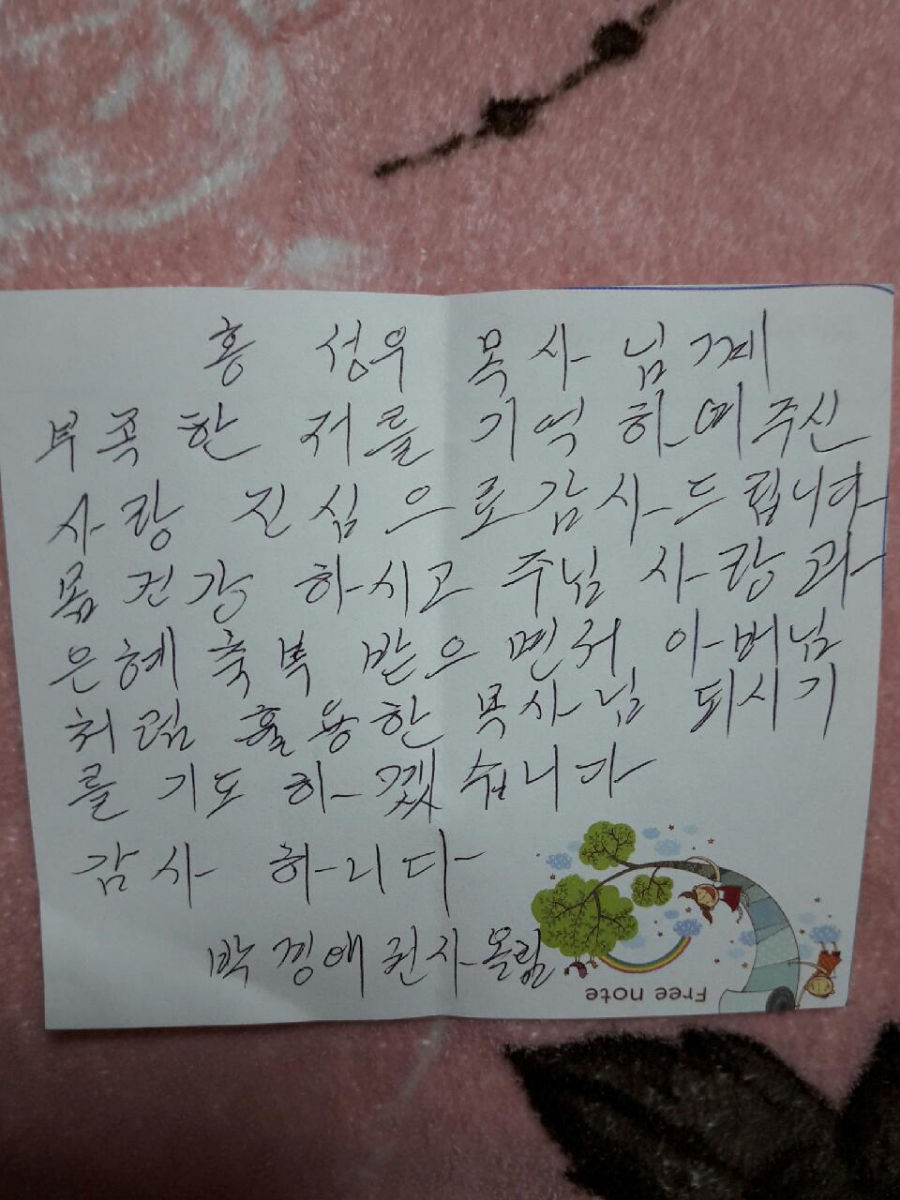 홍 성우 목사 님께
부족한 저를 기억 하여주신
사랑 진심으로감사드립니다
몸건강 하시고 주님 사랑과
은혜축복 받으면서 아버님
처럼 훌융한 목사님 되시기
를 기도 하겠습니다
감사 하니다
박경애권사올림
Free note